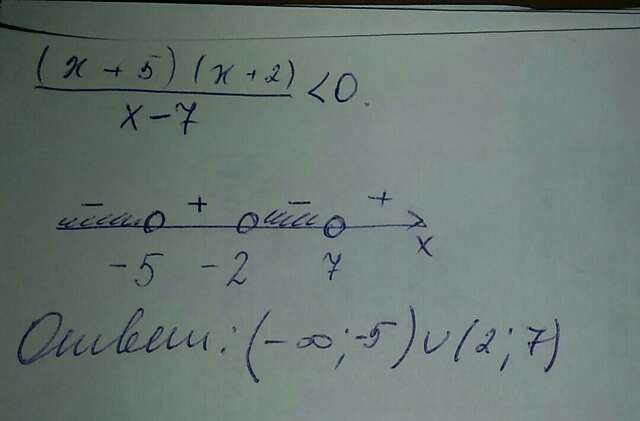 (x + 5) (x + 2)
x - 7
< 0.
- + - +
-5 -2 7 x
Ответ: (-∞; -5) ∪ (2; 7)